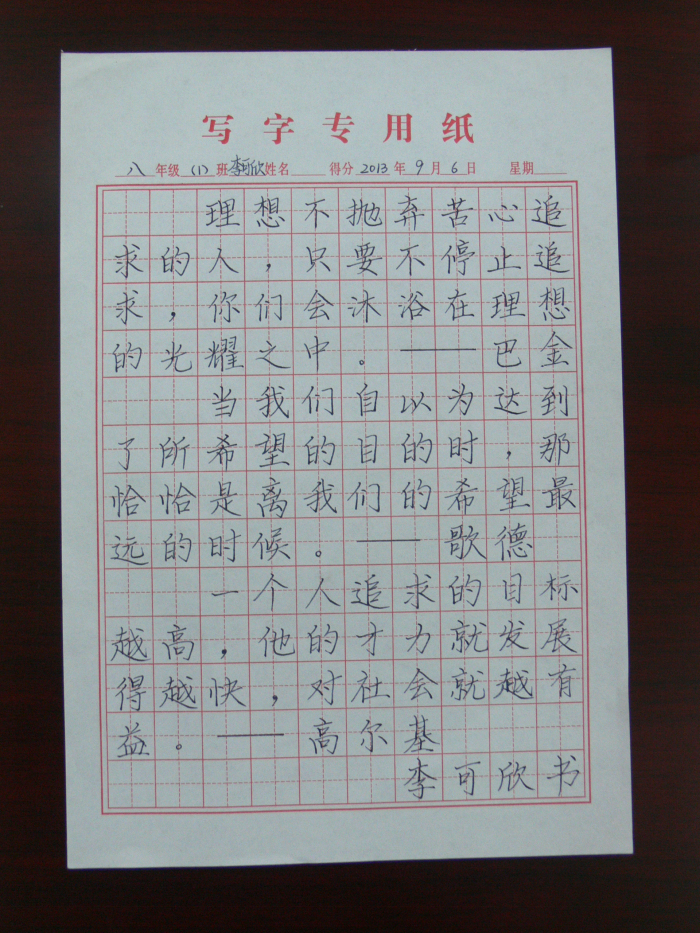 写字专用纸
八年级(1)班李可欣姓名 得分 2013年9月6日 星期
理想不抛弃苦心追
求的人，只要不停止追
求，你们会沐浴在理想
的光耀之中。——巴金
当我们自以为达到
了所希望的目的时，那
恰恰是离我们的希望最
远的时候。——歌德
一个人追求的目标
越高，他的才力就发展
得越快，对社会就越有
益。——高尔基
李可欣书